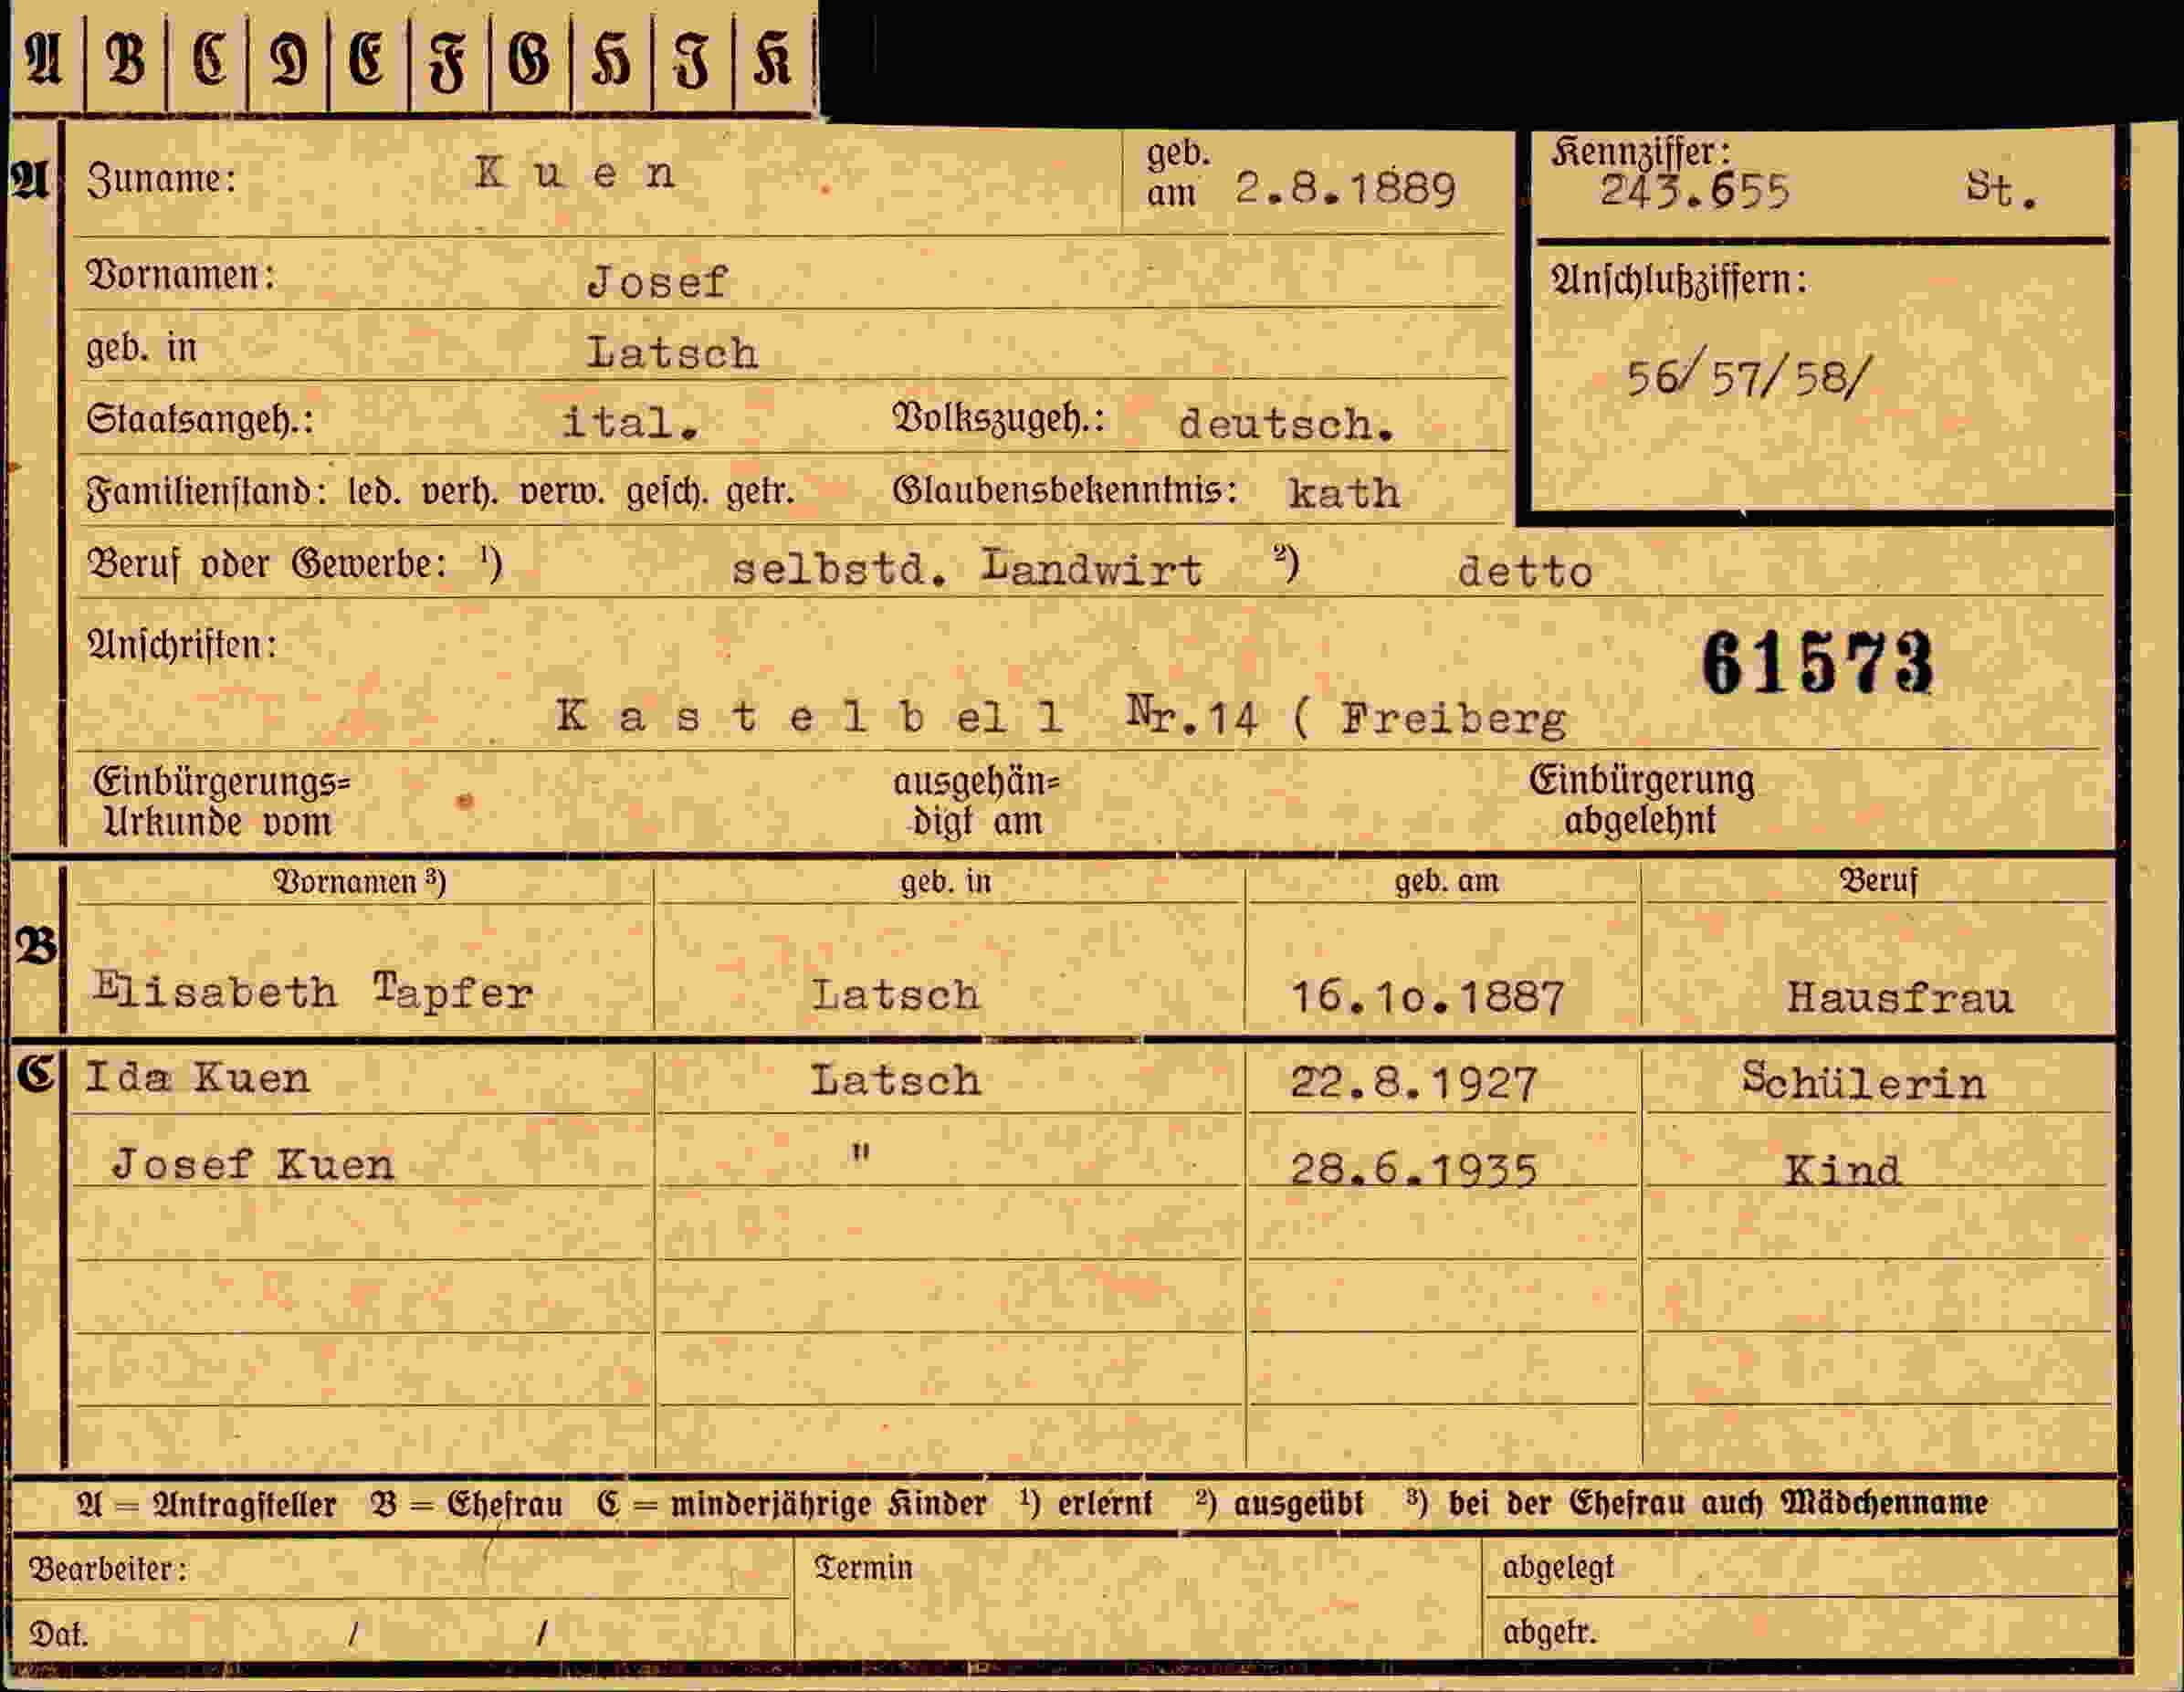 A B C D E F G H J K
A Zuname: Kuen geb. am 2.8.1889 Kennziffer: 243.655 St.
Vornamen: Josef Anschlußziffern:
geb. in Latsch 56/57/58/
Staatsangeh.: ital. Volkszugeh.: deutsch.
Familienstand: led. verh. verw. gesch. getr. Glaubensbekenntnis: kath
Beruf oder Gewerbe: ¹) selbstd. Landwirt ²) detto
Anschriften: 61573
Kastelbell Nr.14 ( Freiberg
Einbürgerungs= ausgehän= Einbürgerung
Urkunde vom digt am abgelehnt
Vornamen ³) geb. in geb. am Beruf
B Elisabeth Tapfer Latsch 16.10.1887 Hausfrau
C Ida Kuen Latsch 22.8.1927 Schülerin
Josef Kuen " 28.6.1935 Kind
A = Antragsteller B = Ehefrau C = minderjährige Kinder ¹) erlernt ²) ausgeübt ³) bei der Ehefrau auch Mädchenname
Bearbeiter: Termin abgelegt
Dat. / / abgetr.